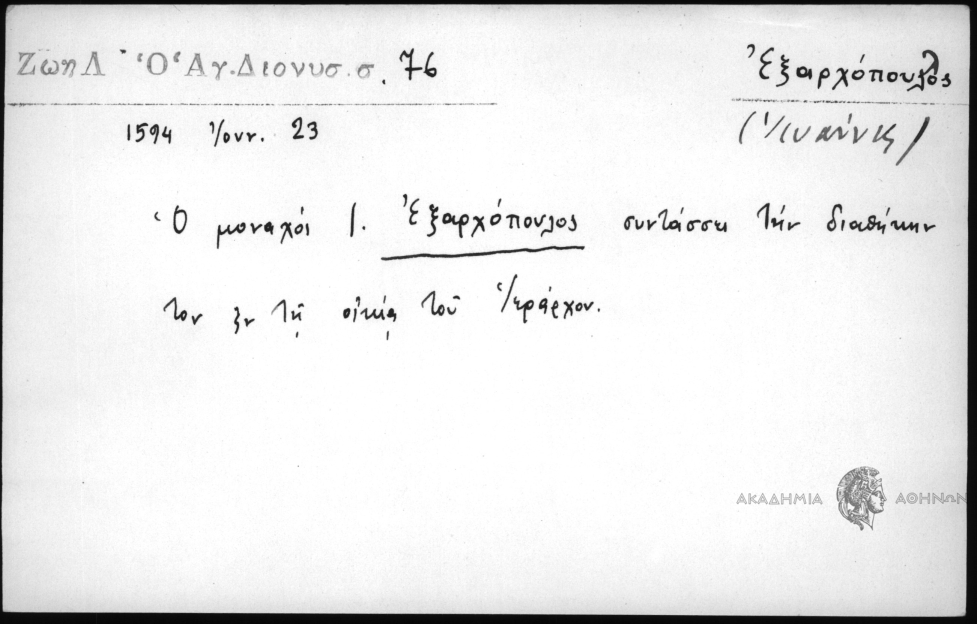 Ζωη Λ Ὁ Ἁγ. Διονυσ. σ. 76
Ἐξαρχόπουλος
1594 Ἰουν. 23
(Ἰωάννης)
Ὁ μοναχός Ι. Ἐξαρχόπουλος συντάσσει τήν διαθήκην
του ἐν τῇ οἰκίᾳ τοῦ Ἱεράρχου.
ΑΚΑΔΗΜΙΑ ΑΘΗΝΩΝ